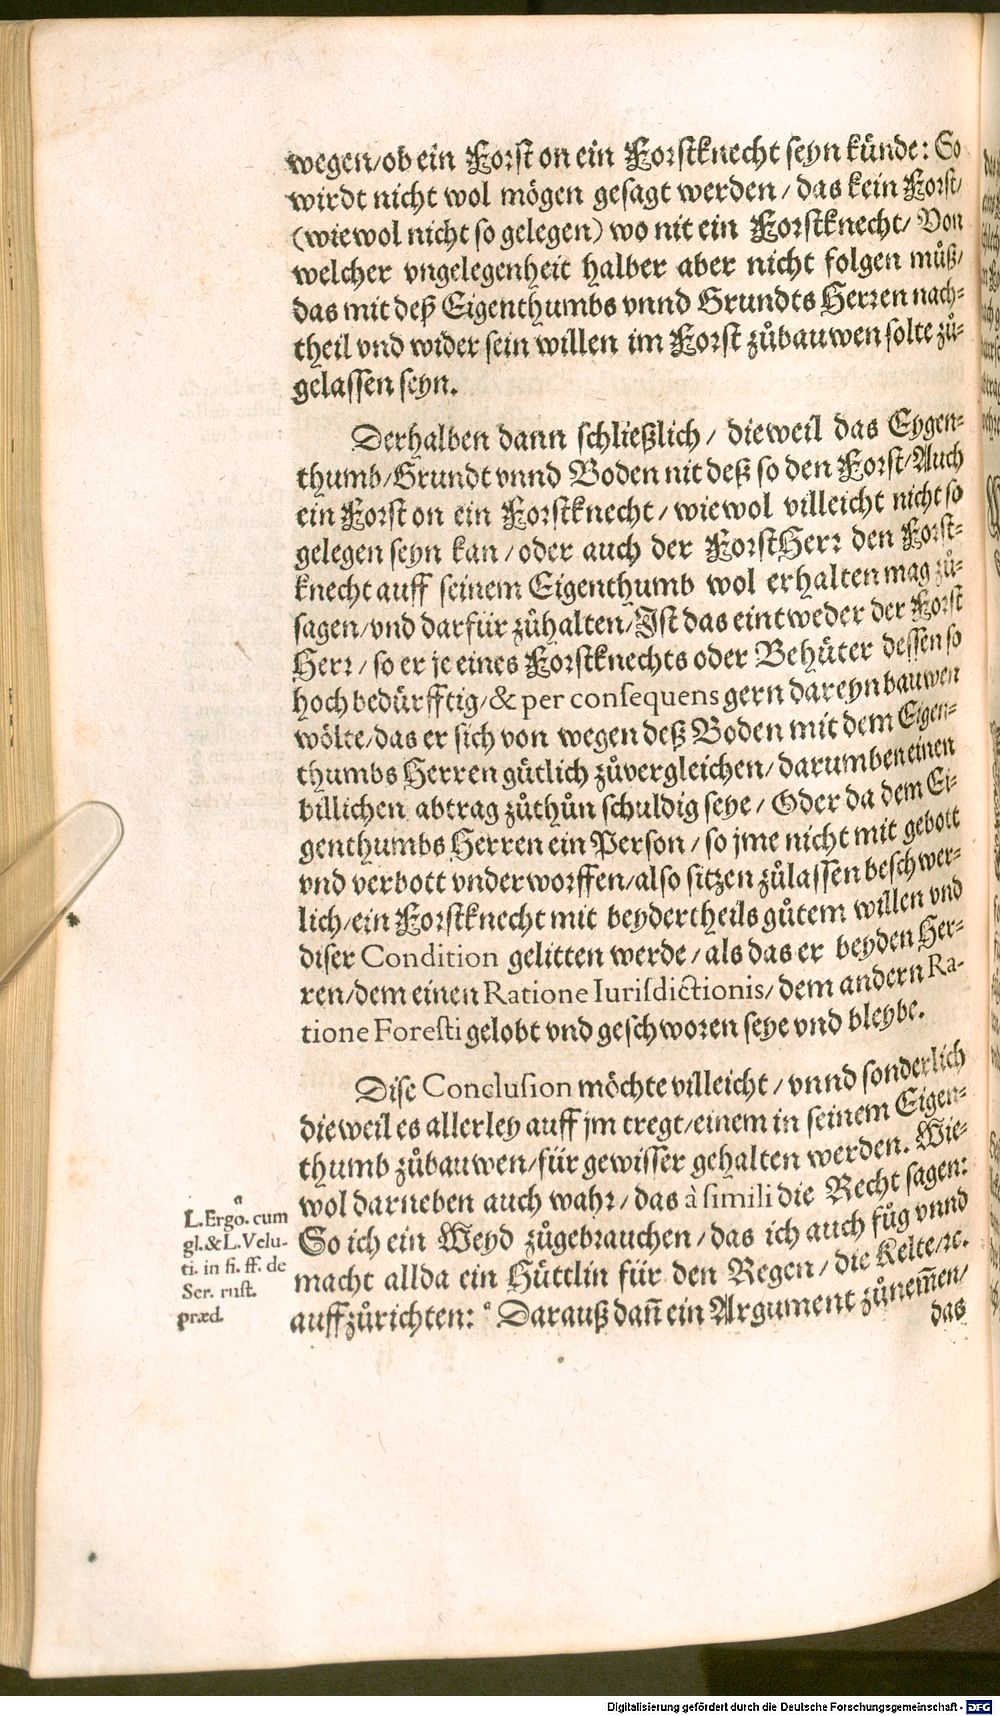 wegen/ob ein Forst on ein Forstknecht seyn künde: So
wirdt nicht wol mögen gesagt werden/das kein Forst/
(wiewol nicht so gelegen) wo nit ein Forstknecht/Von
welcher vngelegenheit halber aber nicht folgen můß/
das mit deß Eigenthumbs vnnd Grundts Herren nach-
theil vnd wider sein willen im Forst zůbauwen solte zů-
gelassen seyn.
Derhalben dann schließlich/dieweil das Eygen-
thumb/Grundt vnnd Boden nit deß so den Forst/Auch
ein Forst on ein Forstknecht/wiewol villeicht nicht so
gelegen seyn kan/oder auch der ForstHerr den Forst-
knecht auff seinem Eigenthumb wol erhalten mag zů-
sagen/vnd darfür zůhalten/Ist das eintweder der Forst
Herr/so er je eines Forstknechts oder Behüter dessen so
hoch bedürfftig/& per consequens gern dareyn bauwen
wölte/das er sich von wegen deß Boden mit dem Eigen-
thumbs Herren gütlich zůvergleichen/darumben einen
billichen abtrag zůthůn schuldig seye/Oder da dem Ei-
genthumbs Herren ein Person/so jme nicht mit gebott
vnd verbott vnderworffen/also sitzen zůlassen beschwer-
lich/ein Forstknecht mit beydertheils gůtem willen vnd
diser Condition gelitten werde/als das er beyden Her-
ren/dem einen Ratione Iurisdictionis/dem andern Ra-
tione Foresti gelobt vnd geschworen seye vnd bleybe.
Dise Conclusion möchte villeicht/vnnd sonderlich
dieweil es allerley auff jm tregt/einem in seinem Eigen-
thumb zůbauwen/für gewisser gehalten werden. Wie-
wol darneben auch wahr/das à simili die Recht sagen:
So ich ein Weyd zůgebrauchen/das ich auch fůg vnnd
macht allda ein Hüttlin für den Regen/die Kelte/rc.
auffzůrichten: a Darauß dañ ein Argument zůnem̃en/
das
a
L. Ergo. cum
gl. & L. Velu-
ti. in fi. ff. de
Ser. rust.
præd.
Digitalisierung gefördert durch die Deutsche Forschungsgemeinschaft - DFG